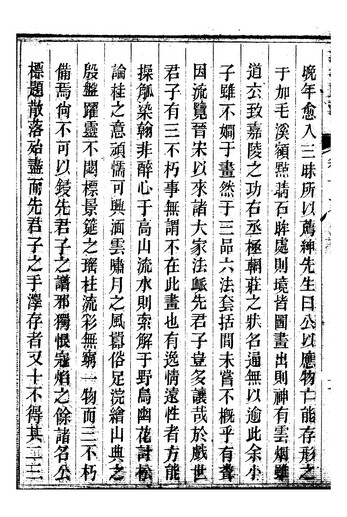 晚年愈入三昧所以薦紳先生曰公以應物亡能存形之
于加毛溪額點睛石眸處則境皆圖畫出則神有雲烟雖
道玄致嘉陵之功右丞極輞莊之狀名通無以逾此余小
子雖不嫺于畫然于三品六法套括間未嘗不概乎有聾
因流覽晉宋以來諸大家法眎先君子豈多讓哉於戲世
君子有三不朽事無謂不在此畫也有逸情遠性者方能
操觚染翰非醉心于高山流水則索解于野鳥幽花討松
論桂之意頑懦可興湎雲嘯月之風囂俗足浣繪山典之
殷盤躍靈不閟標景筵之璃柱流彩無窮一物而三不朽
備焉何不可以鏡先君子之譜邪獨恨寇焰之餘諸名公
標題散落殆盡而先君子之手澤存者又十不得其二三